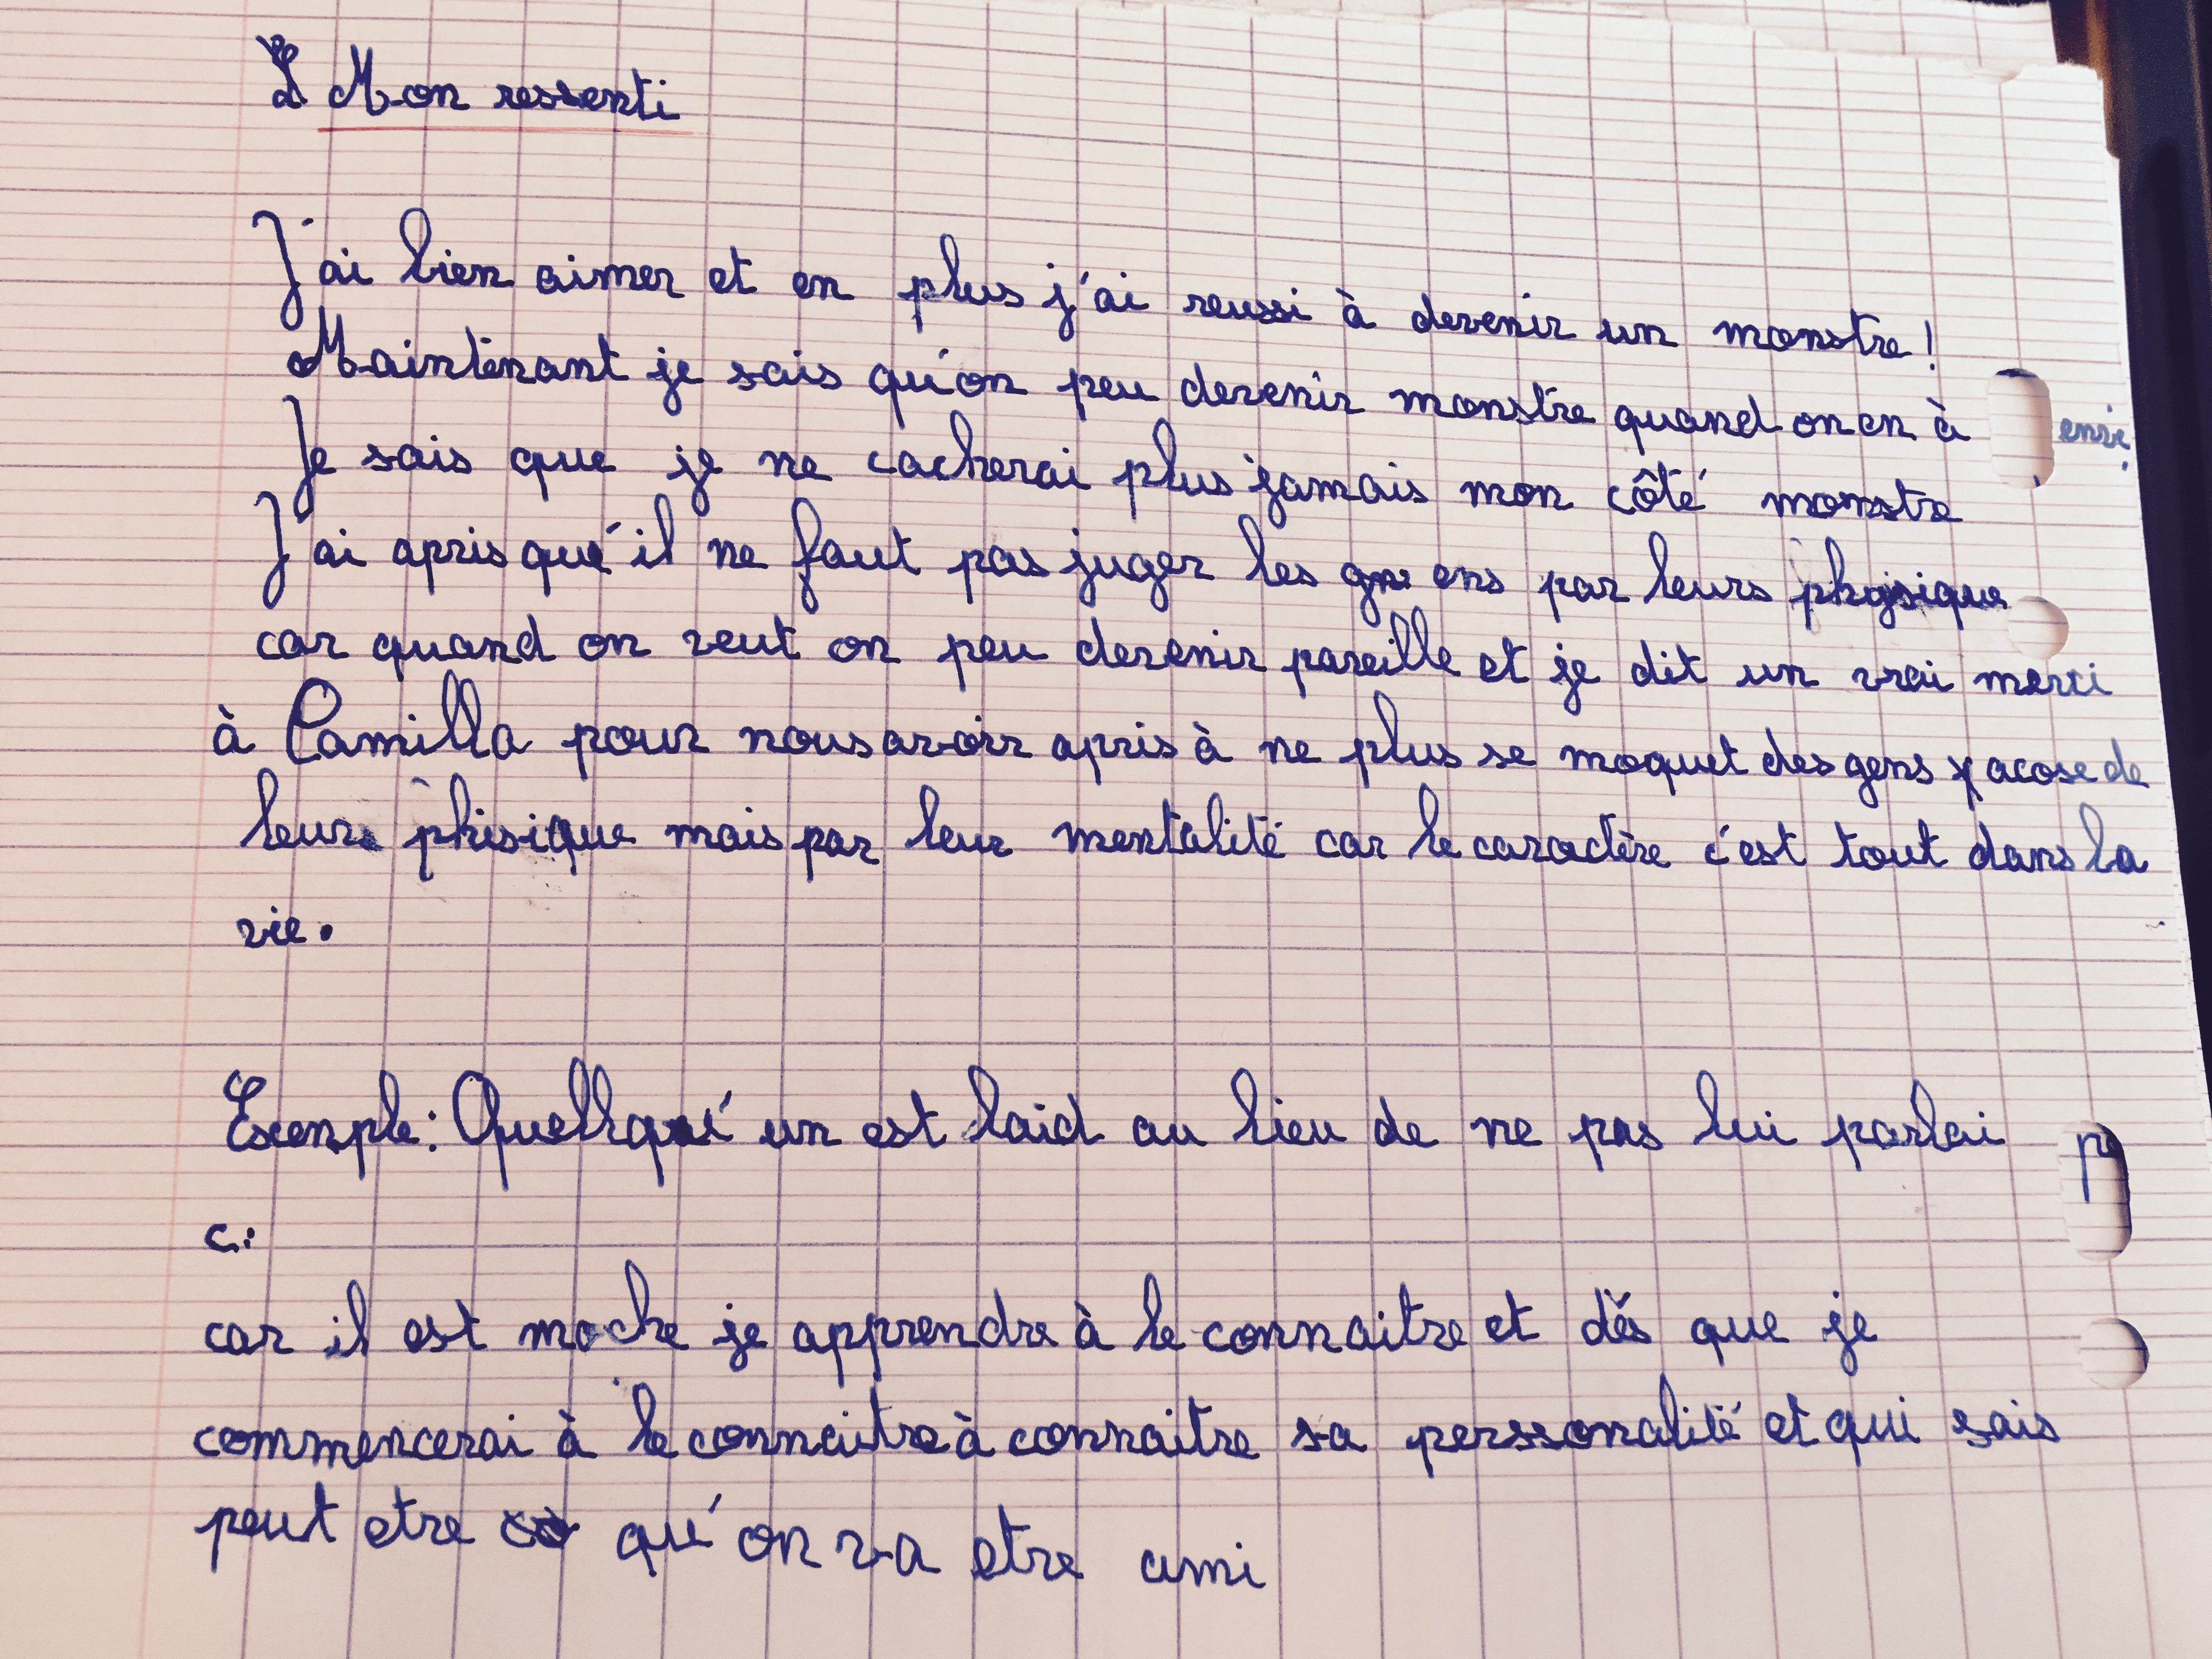 Mon ressenti
J'ai bien aimer et en plus j'ai reussi à devenir un monstre !
Maintenant je sais qu'on peu devenir monstre quand on en à envie
Je sais que je ne cacherai plus jamais mon côté monstre
J'ai apris qu'il ne faut pas juger les gens par leurs physique
car quand on veut on peu devenir pareille et je dit un vrai merci
à Camilla pour nous avoir apris à ne plus se moquet des gens acose de
leurs phisique mais par leur mentalité car le caractère c'est tout dans la
vie.
Exemple : Quellqu' un est laid au lieu de ne pas lui parlai
c.
car il est moche je apprendre à le connaitre et dès que je
commencerai à le connaitre à connaitre sa perssonalité et qui sais
peut etre qu'on va etre ami